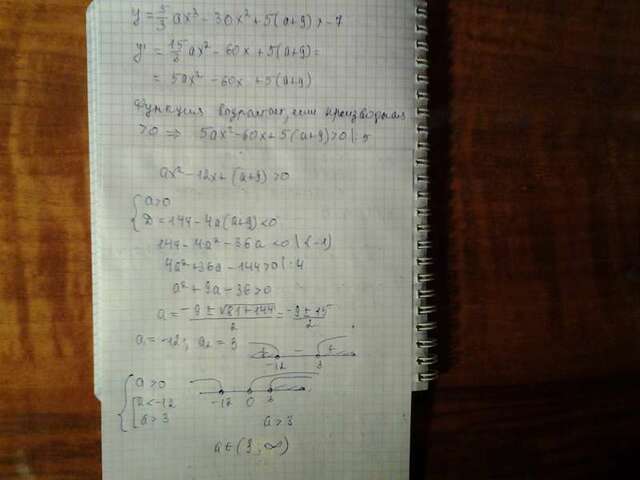 y = 5/3 ax³ - 30x² + 5(a+9)x - 7
y' = 15/3 ax² - 60x + 5(a+9) =
= 5ax² - 60x + 5(a+9)
Функция возрастает, если производная
>0 ⇒ 5ax² - 60x + 5(a+9) > 0 |:5
ax² - 12x + (a+9) > 0
{ a>0
D = 144 - 4a(a+9) < 0
144 - 4a² - 36a < 0 | (-1)
4a² + 36a - 144 > 0 | :4
a² + 9a - 36 > 0
a = (-9 ± √(81+144))/2 = (-9 ± 15)/2
a₁ = -12; a₂ = 3
+ - +
-12 3
{ a > 0
[ a < -12
[ a > 3
-12 0 3
a > 3
a ∈ (3; ∞)